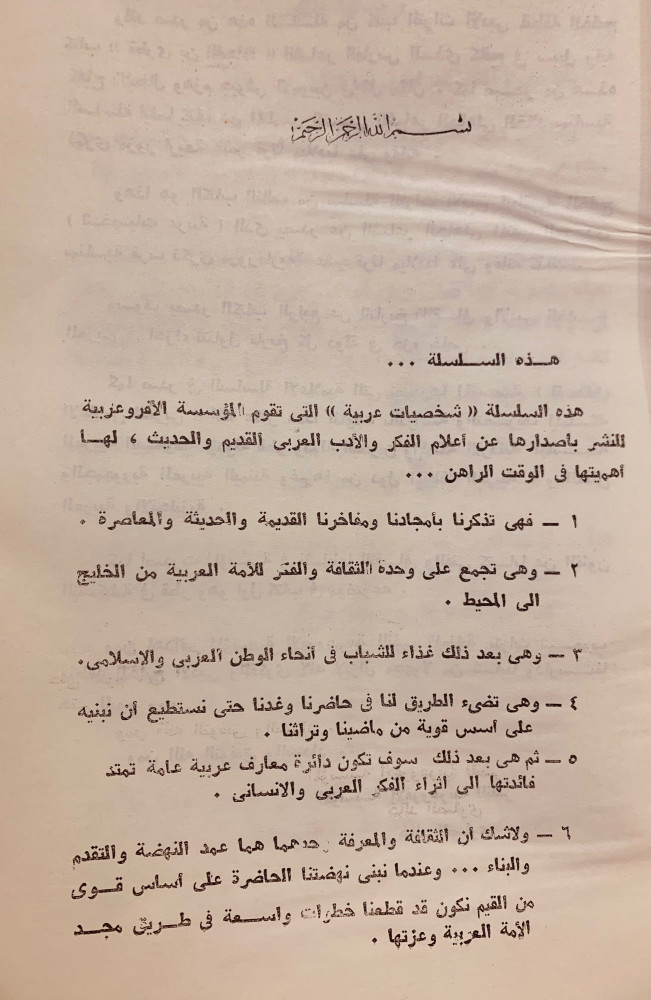 بسم الله الرحمن الرحيم
هـذه السـلسـلة ...
هذه السلسلة « شخصيات عربية » التى تقوم المؤسسة الأفروعربية
للنشر بأصدارها عن أعلام الفكر والأدب العربى القديم والحديث ، لهـا
أهميتها فى الوقت الراهن ...
١ – فهى تذكرنا بأمجادنا ومفاخرنا القديمة والحديثة والمعاصرة .
٢ – وهى تجمع على وحدة الثقافة والفتر للأمة العربية من الخليج
الى المحيط .
٣ – وهى بعد ذلك غذاء للشباب فى أنحاء الوطن العربى والاسلامى.
٤ – وهى تضىء الطريق لنا فى حاضرنا وغدنا حتى نستطيع أن نبنيه
على أسس قوية من ماضينا وتراثنا .
٥ – ثم هى بعد ذلك سوف تكون دائرة معارف عربية عامة تمتد
فائدتها الى اثراء الفكر العربى والانسانى .
٦ – ولاشك أن الثقافة والمعرفة هما عمد النهضة والتقدم
والبناء ... وعندما نبنى نهضتنا الحاضرة على أساس قـوى
من القيم نكون قد قطعنا خطوات واسـعة فى طريق مجـد
الأمة العربية وعزتها .